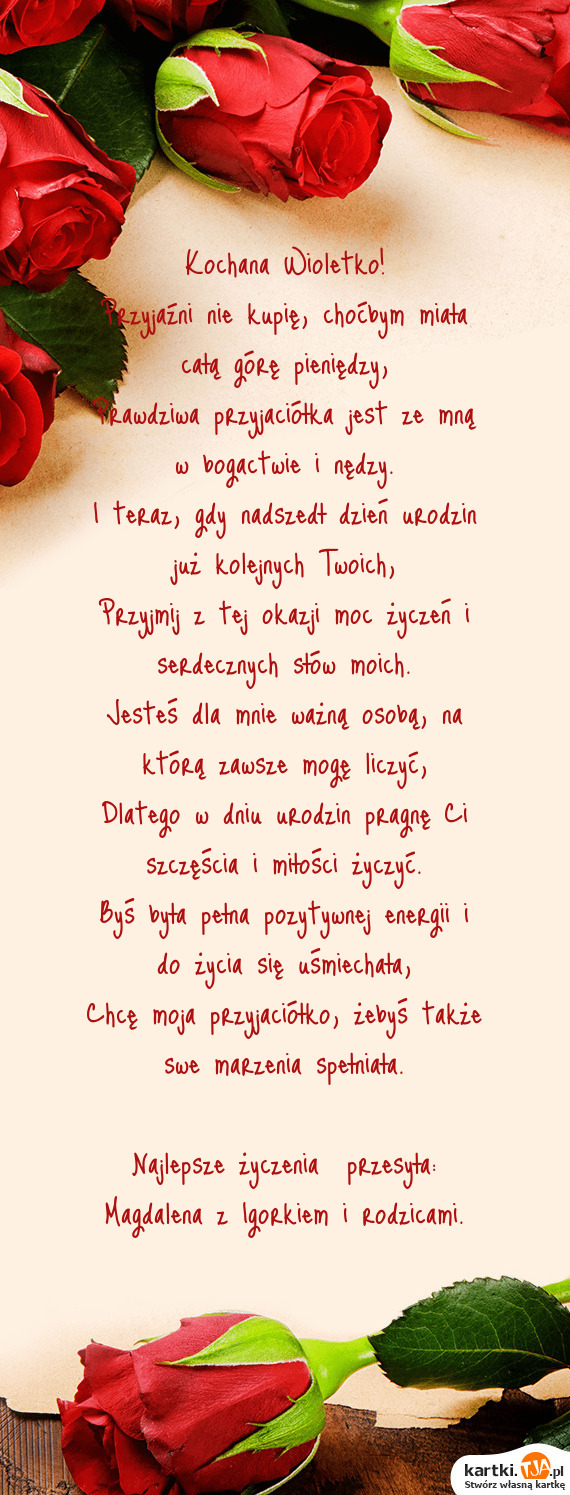 Kochana Wioletko!
Przyjaźni nie kupię, choćbym miała
całą górę pieniędzy,
Prawdziwa przyjaciółka jest ze mną
w bogactwie i nędzy.
I teraz, gdy nadszedł dzień urodzin
już kolejnych Twoich,
Przyjmij z tej okazji moc życzeń i
serdecznych słów moich.
Jesteś dla mnie ważną osobą, na
którą zawsze mogę liczyć,
Dlatego w dniu urodzin pragnę Ci
szczęścia i miłości życzyć.
Byś była pełna pozytywnej energii i
do życia się uśmiechała,
Chcę moja przyjaciółko, żebyś także
swe marzenia spełniała.
Najlepsze życzenia przesyła:
Magdalena z Igorkiem i rodzicami.
kartki.TJA.pl
Stwórz własną kartkę